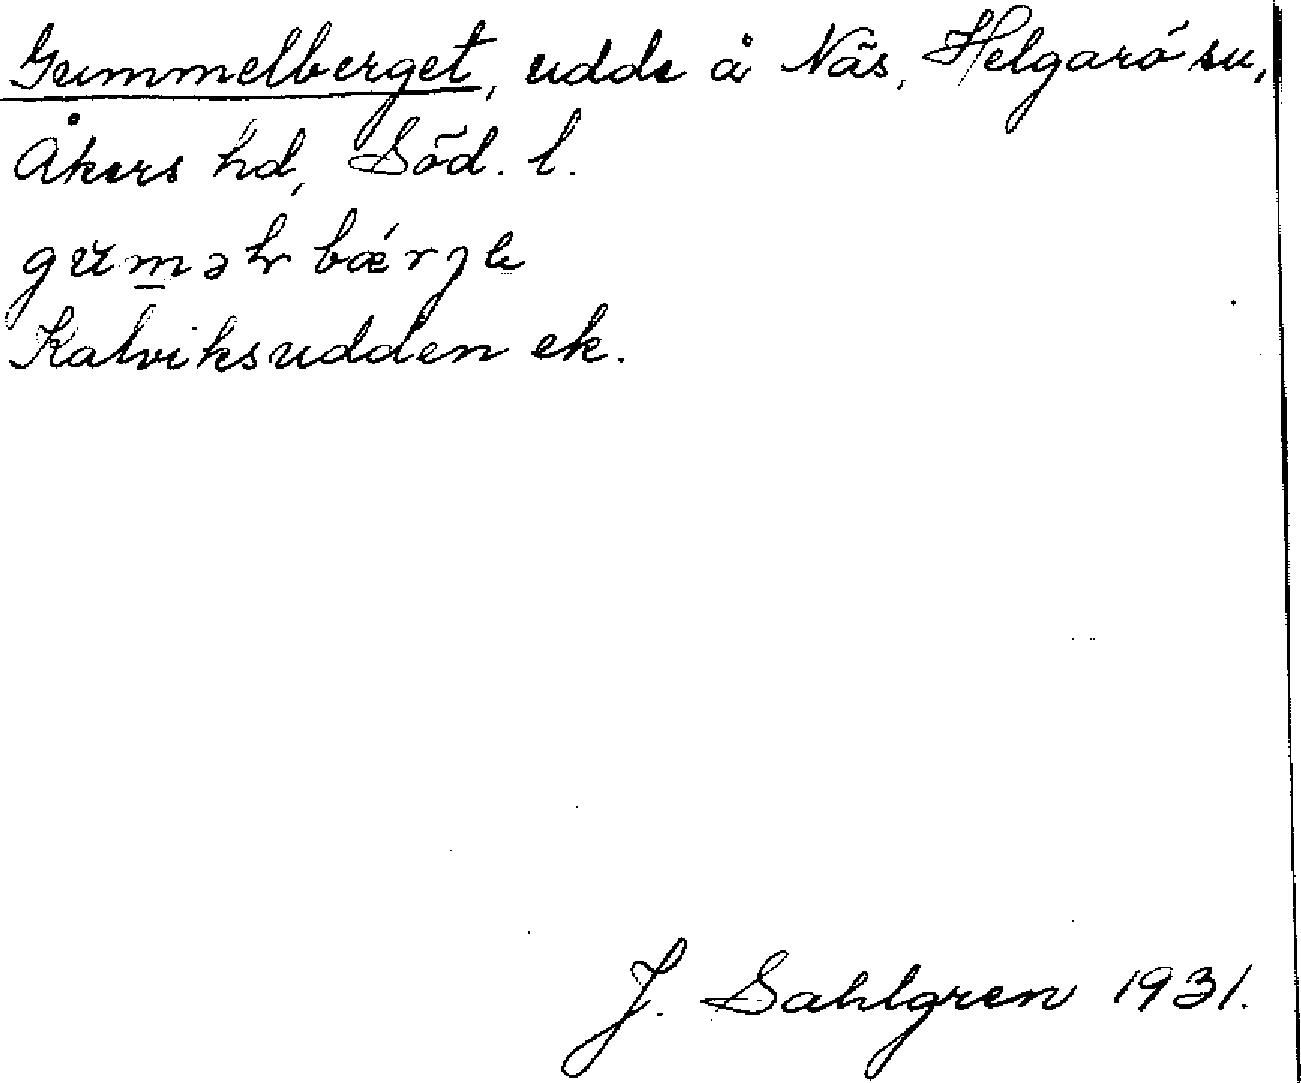 Gummelberget, udde å Näs, Helgarö sn,
Åkers hd, Söd. l.
Kalviksudden ek.
J. Sahlgren 1931.